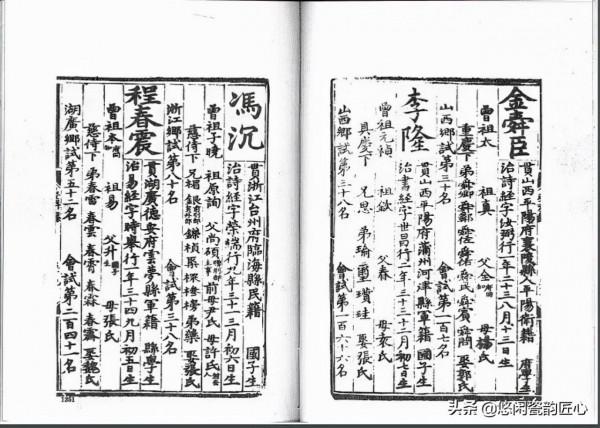 金舜臣
貫山西平陽府襄陵縣人平陽衛籍 府學生
治詩經字汝弼行一年三十二八月十三日生
曾祖太 祖真 父金 母楊氏
重慶下 弟舜卿 舜佐 舜民 舜賓 娶郭氏
山西鄉試第三十名 會試第一百七名
李隆
貫山西平陽府蒲州河津縣軍籍 國子生
治書經字世昌行二年三十三十二月初七日生
曾祖元禎 祖欽 父春 母
具慶下 兄思 弟瑜 璽 瓚 珪 娶張氏
山西鄉試第三十八名 會試第一百六十六名
馮沉
貫浙江台州府臨海縣民籍 國子生
治詩經字榮端行九年三十一三月初六日生
曾祖子曉 祖原詢 父高碩 前母尹氏 母許氏
慈侍下 兄 銀 鐮 楨 弟 娶張氏
浙江鄉試第八十名 會試第三十八名
程春震
貫湖廣德安府雲夢縣軍籍 縣學生
治易經字時舉行二年三十四九月初五日生
曾祖本 祖易 父升 母張氏
慈侍下 弟春雷 春雲 春霄 春霖 春霽 娶魏氏
湖廣鄉試第五十二名 會試第二百四十一名
1231
头条 @悠闲瓷韵匠心